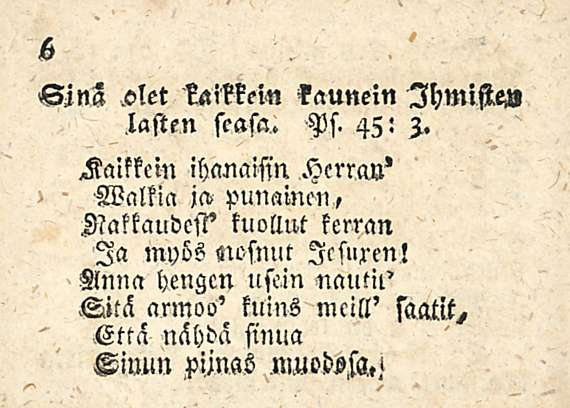 6
Sinä olet kaikkein kaunein Ihmisten
lasten seasa. Ps. 45: 3.
Kaikkein ihanaisin Herran'
Walkia ja punainen,
Rakkaudest' kuollut kerran
Ja myös nosnut Jesuxen!
Anna hengen usein nautit'
Sitä armoo' kuins meill' saatit,
Että nähdä sinua
Sinun pijnas muodosa.